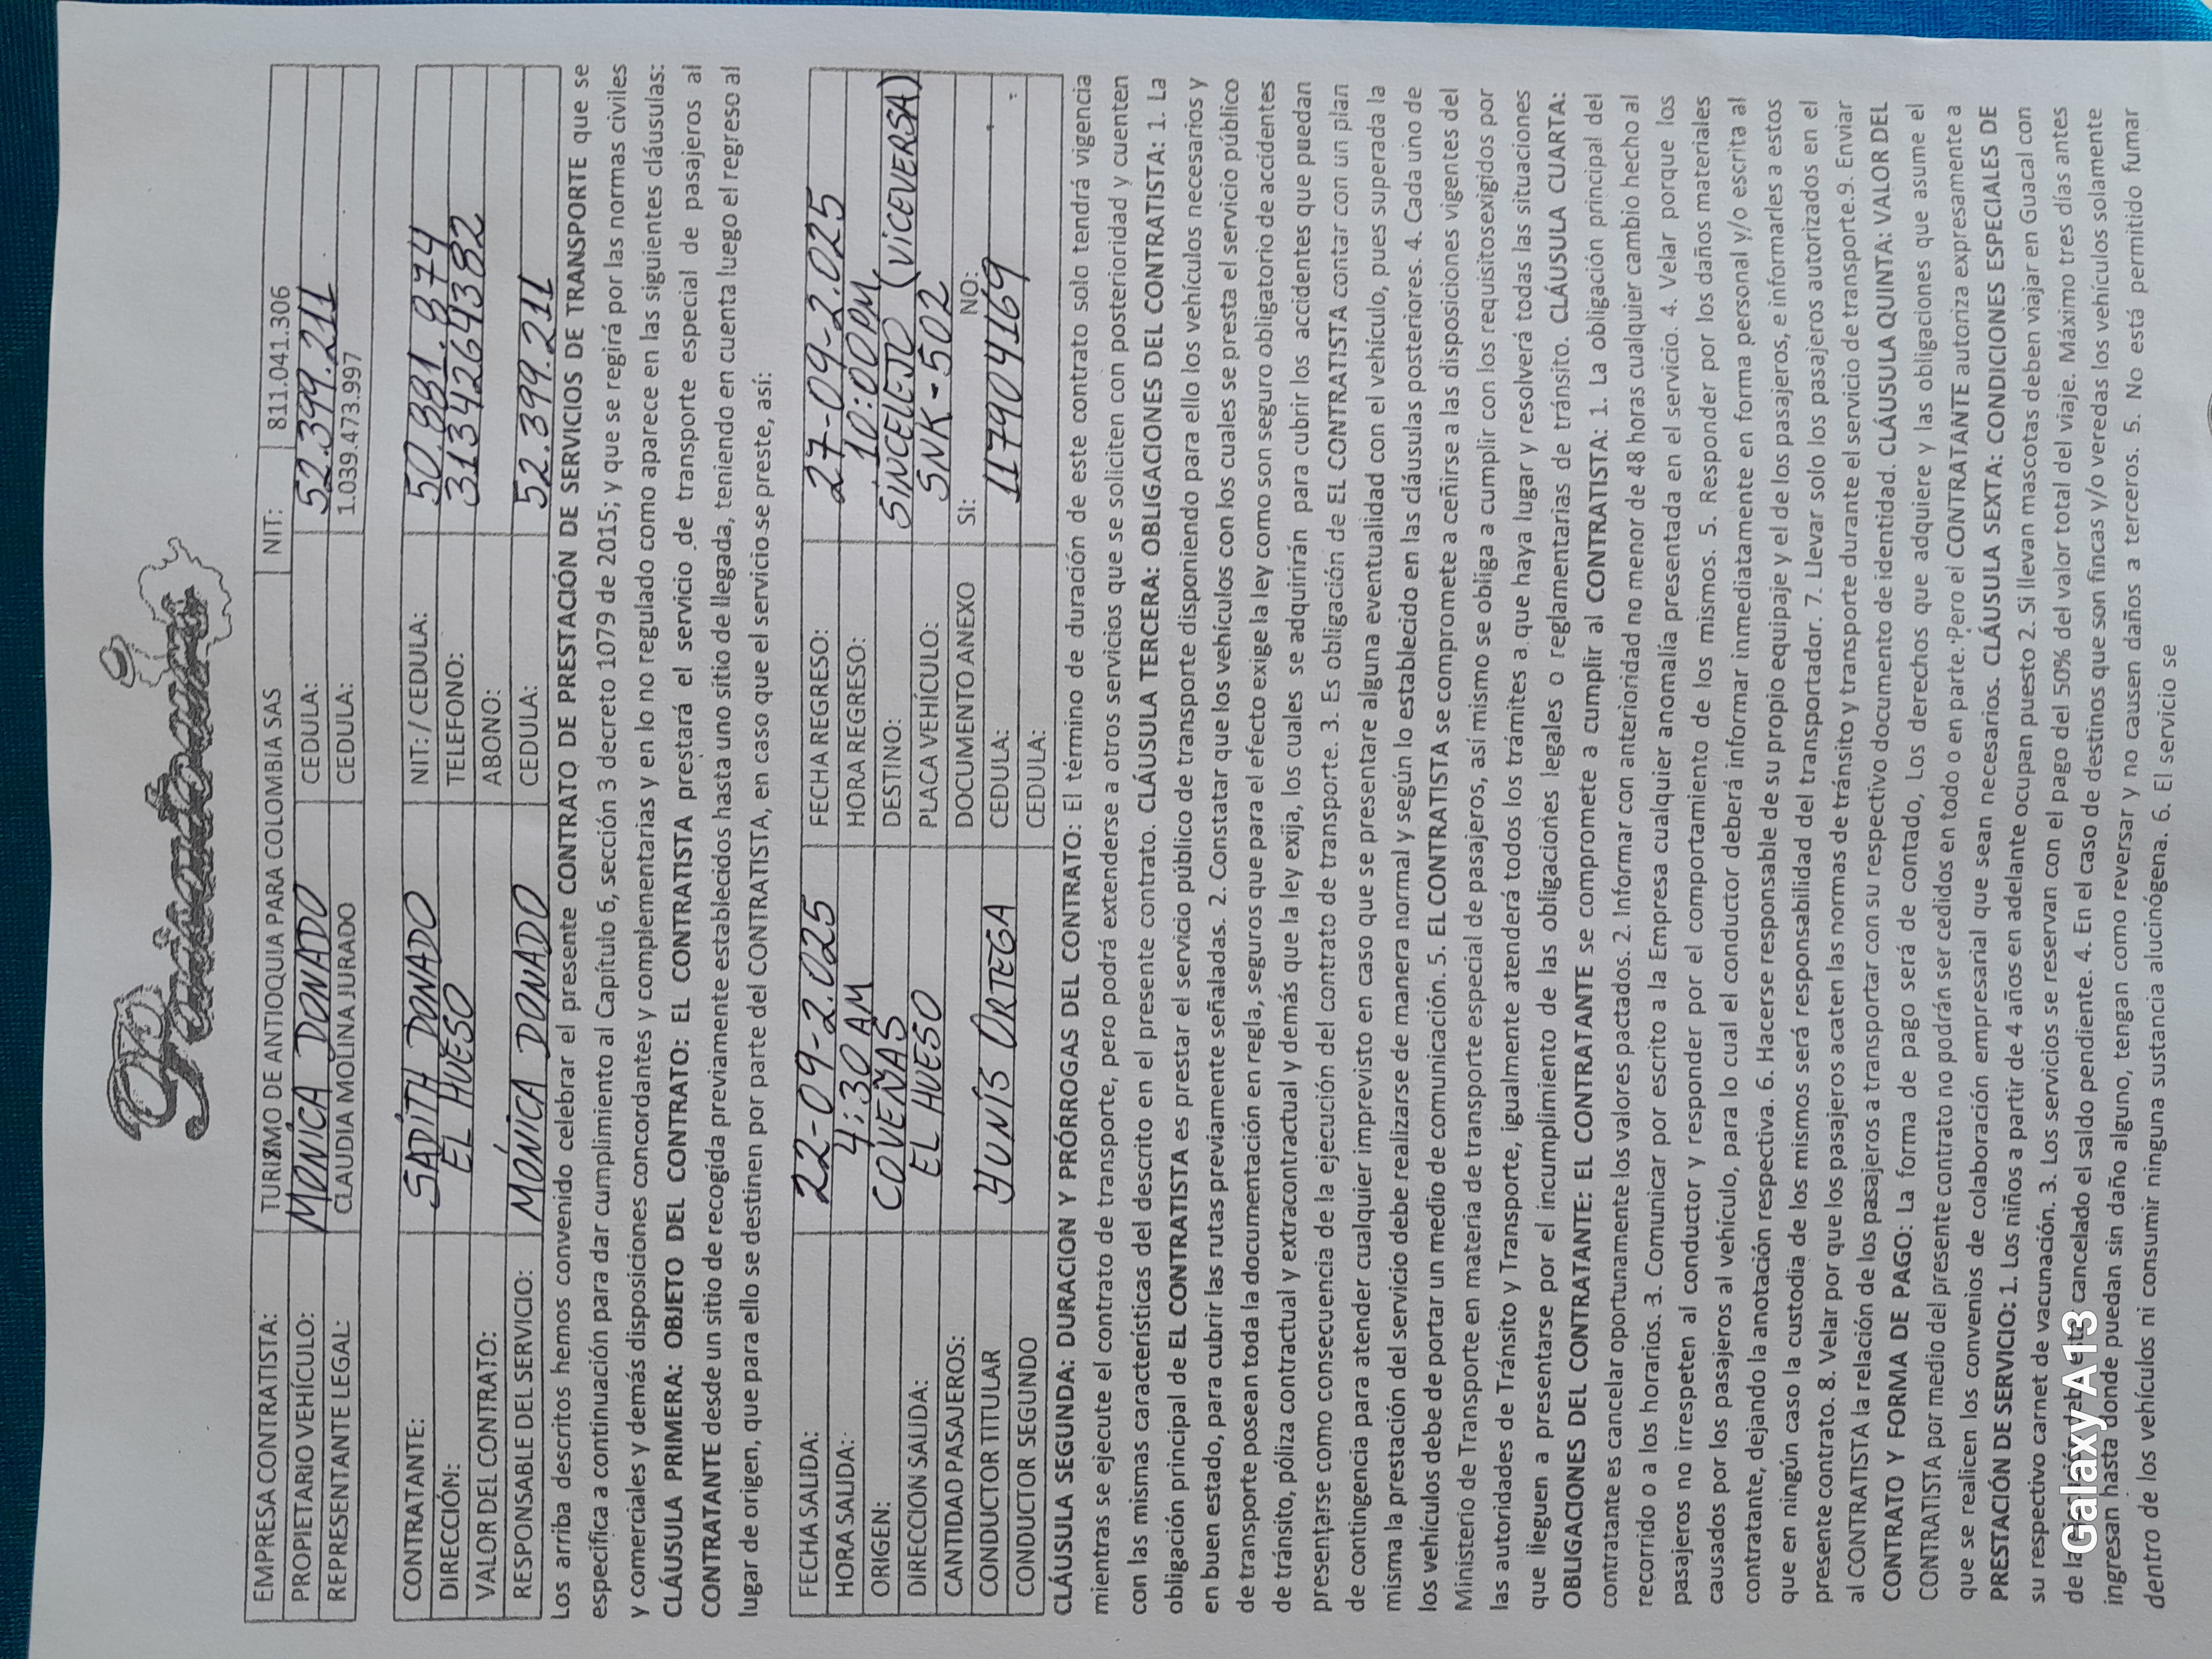 EMPRESA CONTRATISTA: TURISMO DE ANTIOQUIA PARA COLOMBIA SAS NIT: 811.041.306
PROPIETARIO VEHÍCULO: MONICA DONADO CEDULA: 52.399.211
REPRESENTANTE LEGAL: CLAUDIA MOLINA JURADO CEDULA: 1.039.473.997
CONTRATANTE: SADITH DONADO NIT: / CEDULA: 50.881.874
DIRECCIÓN: EL HUESO TELEFONO: 3134264382
VALOR DEL CONTRATO: ABONO:
RESPONSABLE DEL SERVICIO: MONICA DONADO CEDULA: 52.399.211
Los arriba descritos hemos convenido celebrar el presente CONTRATO DE PRESTACIÓN DE SERVICIOS DE TRANSPORTE que se
especifica a continuación para dar cumplimiento al Capítulo 6, sección 3 decreto 1079 de 2015; y que se regirá por las normas civiles
y comerciales y demás disposiciones concordantes y complementarias y en lo no regulado como aparece en las siguientes cláusulas:
CLÁUSULA PRIMERA: OBJETO DEL CONTRATO: EL CONTRATISTA prestará el servicio de transporte especial de pasajeros al
CONTRATANTE desde un sitio de recogida previamente establecidos hasta uno sitio de llegada, teniendo en cuenta luego el regreso al
lugar de origen, que para ello se destinen por parte del CONTRATISTA, en caso que el servicio se preste, así:
FECHA SALIDA: 22-09-2.025 FECHA REGRESO: 27-09-2.025
HORA SALIDA: 4:30 AM HORA REGRESO: 10:00 PM
ORIGEN: COVEÑAS DESTINO: SINCELEJO (VICEVERSA)
DIRECCION SALIDA: EL HUESO PLACA VEHÍCULO: SNK-502
CANTIDAD PASAJEROS: DOCUMENTO ANEXO SI: NO:
CONDUCTOR TITULAR YUNIS ORTEGA CEDULA: 117904169
CONDUCTOR SEGUNDO CEDULA:
CLÁUSULA SEGUNDA: DURACION Y PRÓRROGAS DEL CONTRATO: El término de duración de este contrato solo tendrá vigencia
mientras se ejecute el contrato de transporte, pero podrá extenderse a otros servicios que se soliciten con posterioridad y cuenten
con las mismas características del descrito en el presente contrato. CLÁUSULA TERCERA: OBLIGACIONES DEL CONTRATISTA: 1. La
obligación principal de EL CONTRATISTA es prestar el servicio público de transporte disponiendo para ello los vehículos necesarios y
en buen estado, para cubrir las rutas previamente señaladas. 2. Constatar que los vehículos con los cuales se presta el servicio público
de transporte posean toda la documentación en regla, seguros que para el efecto exige la ley como son seguro obligatorio de accidentes
de tránsito, póliza contractual y extracontractual y demás que la ley exija, los cuales se adquirirán para cubrir los accidentes que puedan
presentarse como consecuencia de la ejecución del contrato de transporte. 3. Es obligación de EL CONTRATISTA contar con un plan
de contingencia para atender cualquier imprevisto en caso que se presentare alguna eventualidad con el vehículo, pues superada la
misma la prestación del servicio debe realizarse de manera normal y según lo establecido en las cláusulas posteriores. 4. Cada uno de
los vehículos debe de portar un medio de comunicación. 5. EL CONTRATISTA se compromete a ceñirse a las disposiciones vigentes del
Ministerio de Transporte en materia de transporte especial de pasajeros, así mismo se obliga a cumplir con los requisitosexigidos por
las autoridades de Tránsito y Transporte, igualmente atenderá todos los trámites a que haya lugar y resolverá todas las situaciones
que lleguen a presentarse por el incumplimiento de las obligaciones legales o reglamentarias de tránsito. CLÁUSULA CUARTA:
OBLIGACIONES DEL CONTRATANTE: EL CONTRATANTE se compromete a cumplir al CONTRATISTA: 1. La obligación principal del
contratante es cancelar oportunamente los valores pactados. 2. Informar con anterioridad no menor de 48 horas cualquier cambio hecho al
recorrido o a los horarios. 3. Comunicar por escrito a la Empresa cualquier anomalía presentada en el servicio. 4. Velar porque los
pasajeros no irrespeten al conductor y responder por el comportamiento de los mismos. 5. Responder por los daños materiales
causados por los pasajeros al vehículo, para lo cual el conductor deberá informar inmediatamente en forma personal y/o escrita al
contratante, dejando la anotación respectiva. 6. Hacerse responsable de su propio equipaje y el de los pasajeros, e informarles a estos
que en ningún caso la custodia de los mismos será responsabilidad del transportador. 7. Llevar solo los pasajeros autorizados en el
presente contrato. 8. Velar por que los pasajeros acaten las normas de tránsito y transporte durante el servicio de transporte.9. Enviar
al CONTRATISTA la relación de los pasajeros a transportar con su respectivo documento de identidad. CLÁUSULA QUINTA: VALOR DEL
CONTRATO Y FORMA DE PAGO: La forma de pago será de contado, Los derechos que adquiere y las obligaciones que asume el
CONTRATISTA por medio del presente contrato no podrán ser cedidos en todo o en parte. Pero el CONTRATANTE autoriza expresamente a
que se realicen los convenios de colaboración empresarial que sean necesarios. CLÁUSULA SEXTA: CONDICIONES ESPECIALES DE
PRESTACIÓN DE SERVICIO: 1. Los niños a partir de 4 años en adelante ocupan puesto 2. Si llevan mascotas deben viajar en Guacal con
su respectivo carnet de vacunación. 3. Los servicios se reservan con el pago del 50% del valor total del viaje. Máximo tres días antes
de la cancelado el saldo pendiente. 4. En el caso de destinos que son fincas y/o veredas los vehículos solamente
ingresan hasta donde puedan sin daño alguno, tengan como reversar y no causen daños a terceros. 5. No está permitido fumar
dentro de los vehículos ni consumir ninguna sustancia alucinógena. 6. El servicio se
Galaxy A13